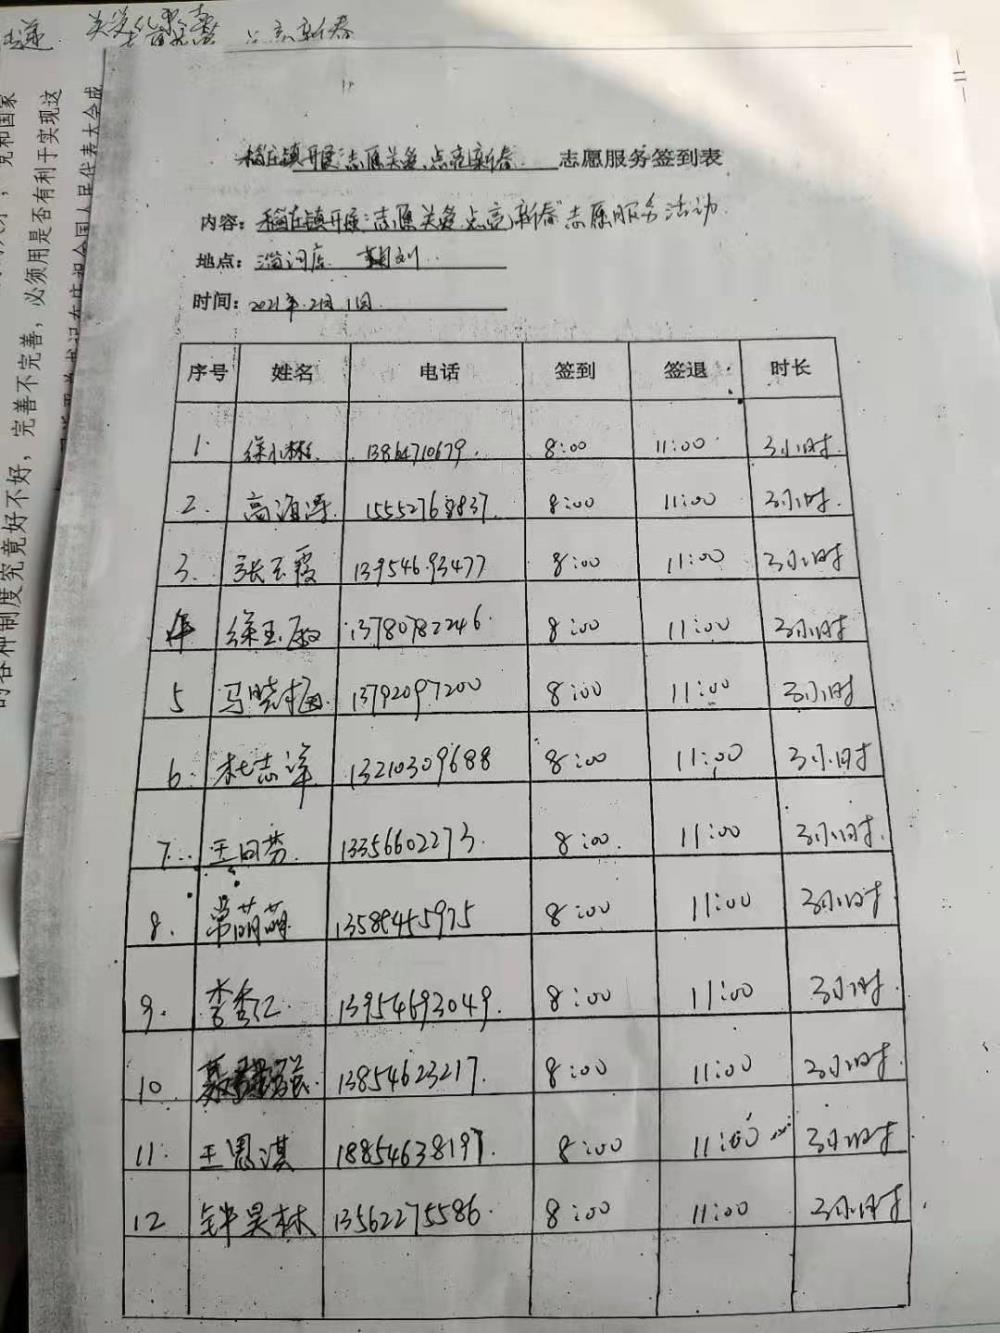 关爱 点亮新春
党和国家
必须用是否有利于实现这
的各种制度究竟好不好，完善不完善，
庆祝全国人民代表大会成
稻庄镇开展"志愿关爱 点亮新春 志愿服务签到表
内容：稻庄镇开展"志愿关爱 点亮新春"志愿服务活动
地点：
时间：2021年2月1日
序号 姓名 电话 签到 签退 时长
1. 徐小彬 13864710679. 8:00 11:00 3小时.
2. 高海涛 15552768837. 8:00 11:00 3小时.
3. 张玉霞 13954693477 8:00 11:00 3小时
徐玉 13780782246. 8:00 11:00 3小时
5 马晓梅. 13792097200 8:00 11:00 3小时
6. 杜志洋 13210309688 8:00 11:00 3小时
7. 王曰芳. 13356602273. 8:00. 11:00 3小时.
8. 常萌萌 13589455975 8:00 11:00 3小时
9. 李秀仁. 13954693049. 8:00 11:00 3小时.
10. 13854623217. 8:00 11:00 3小时.
11. 王恩淇 18854638197. 8:00 11:00 3小时
12 钟昊林 13562275586. 8:00 11:00 3小时